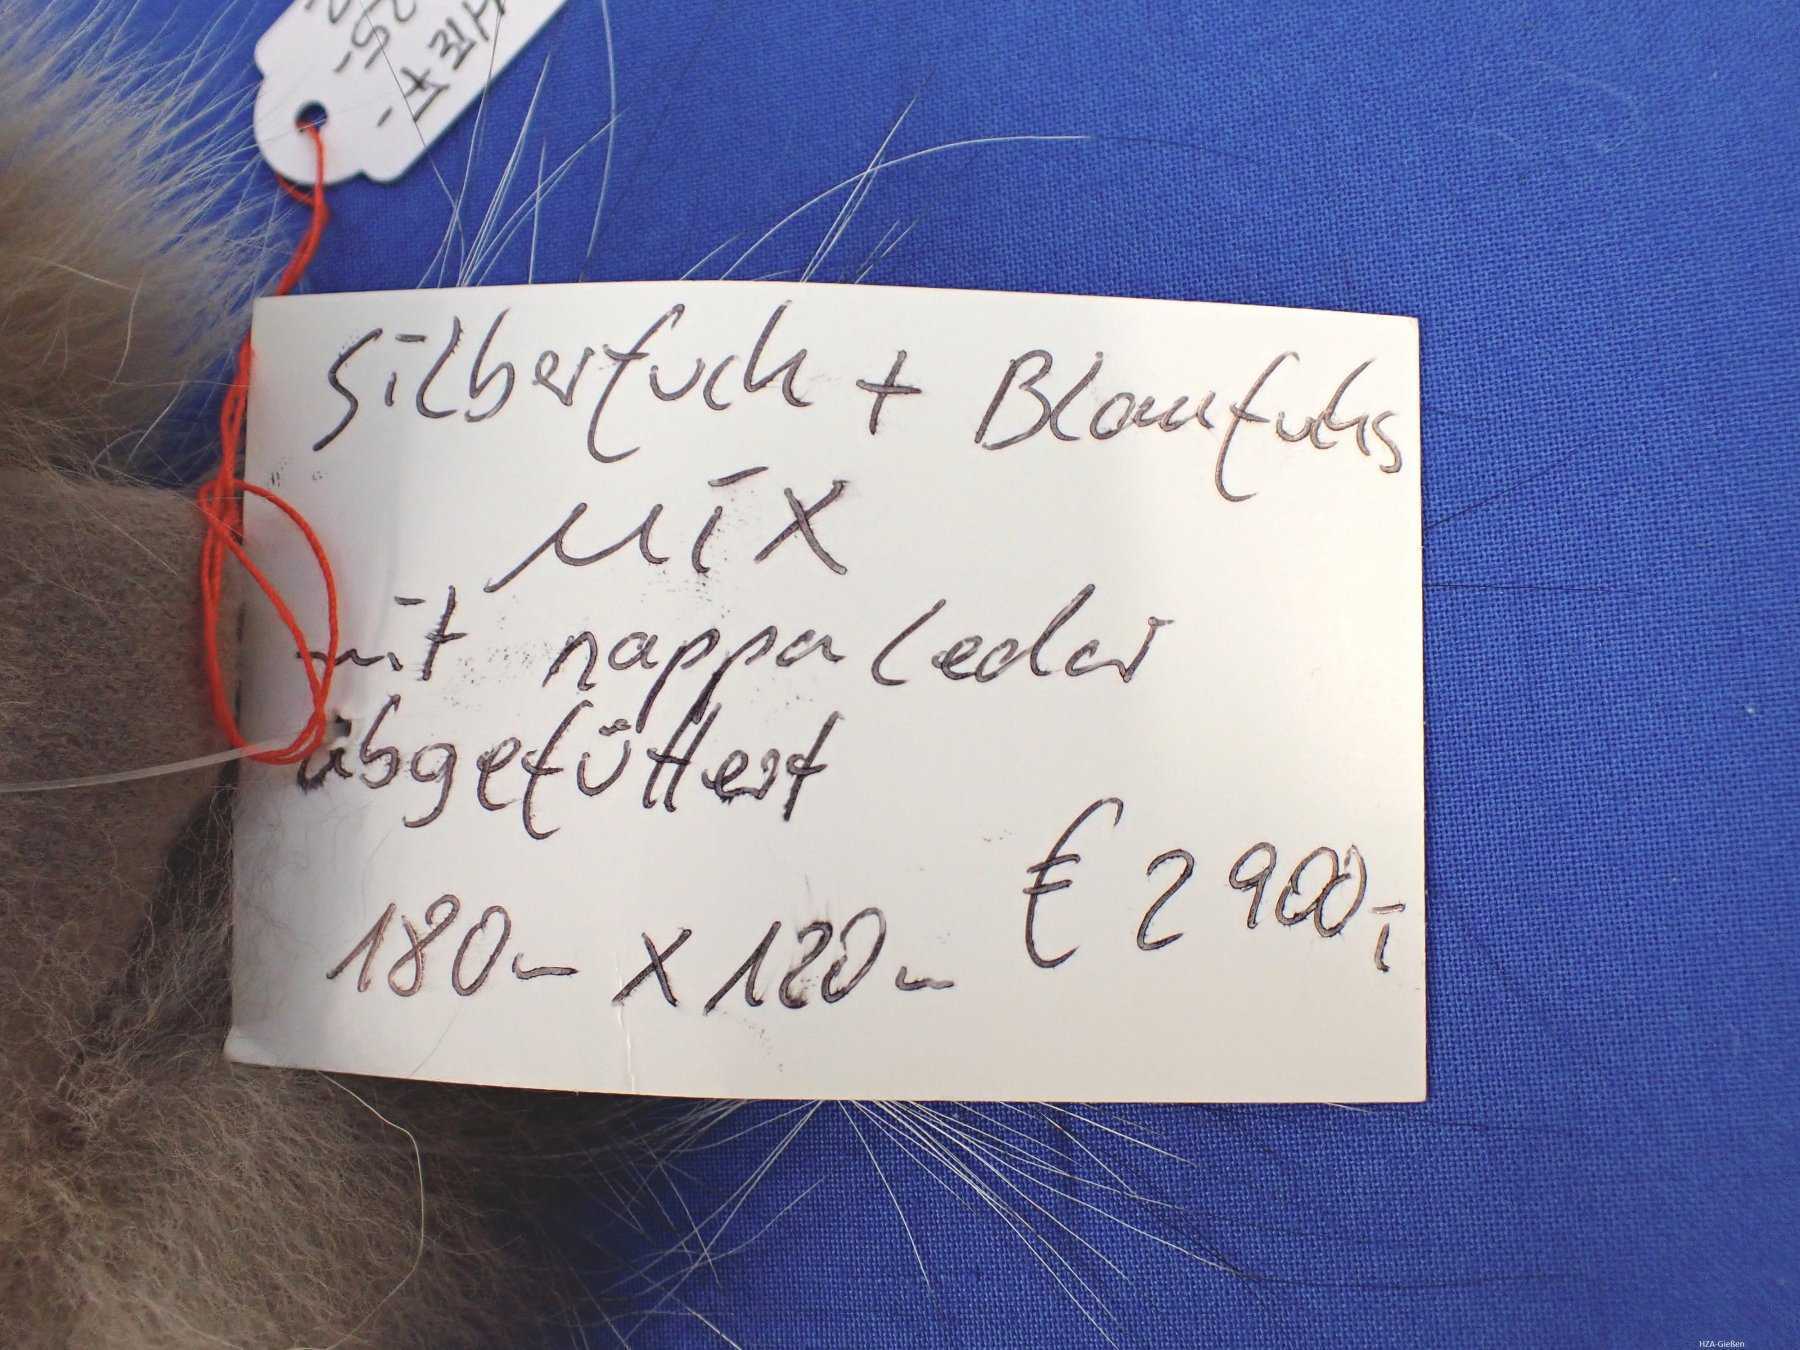 Silberfuch + Blaufuchs
Mix
mit nappa Leder
abgefüttert
€ 2900,-
180cm x 120cm
HZA-Gießen